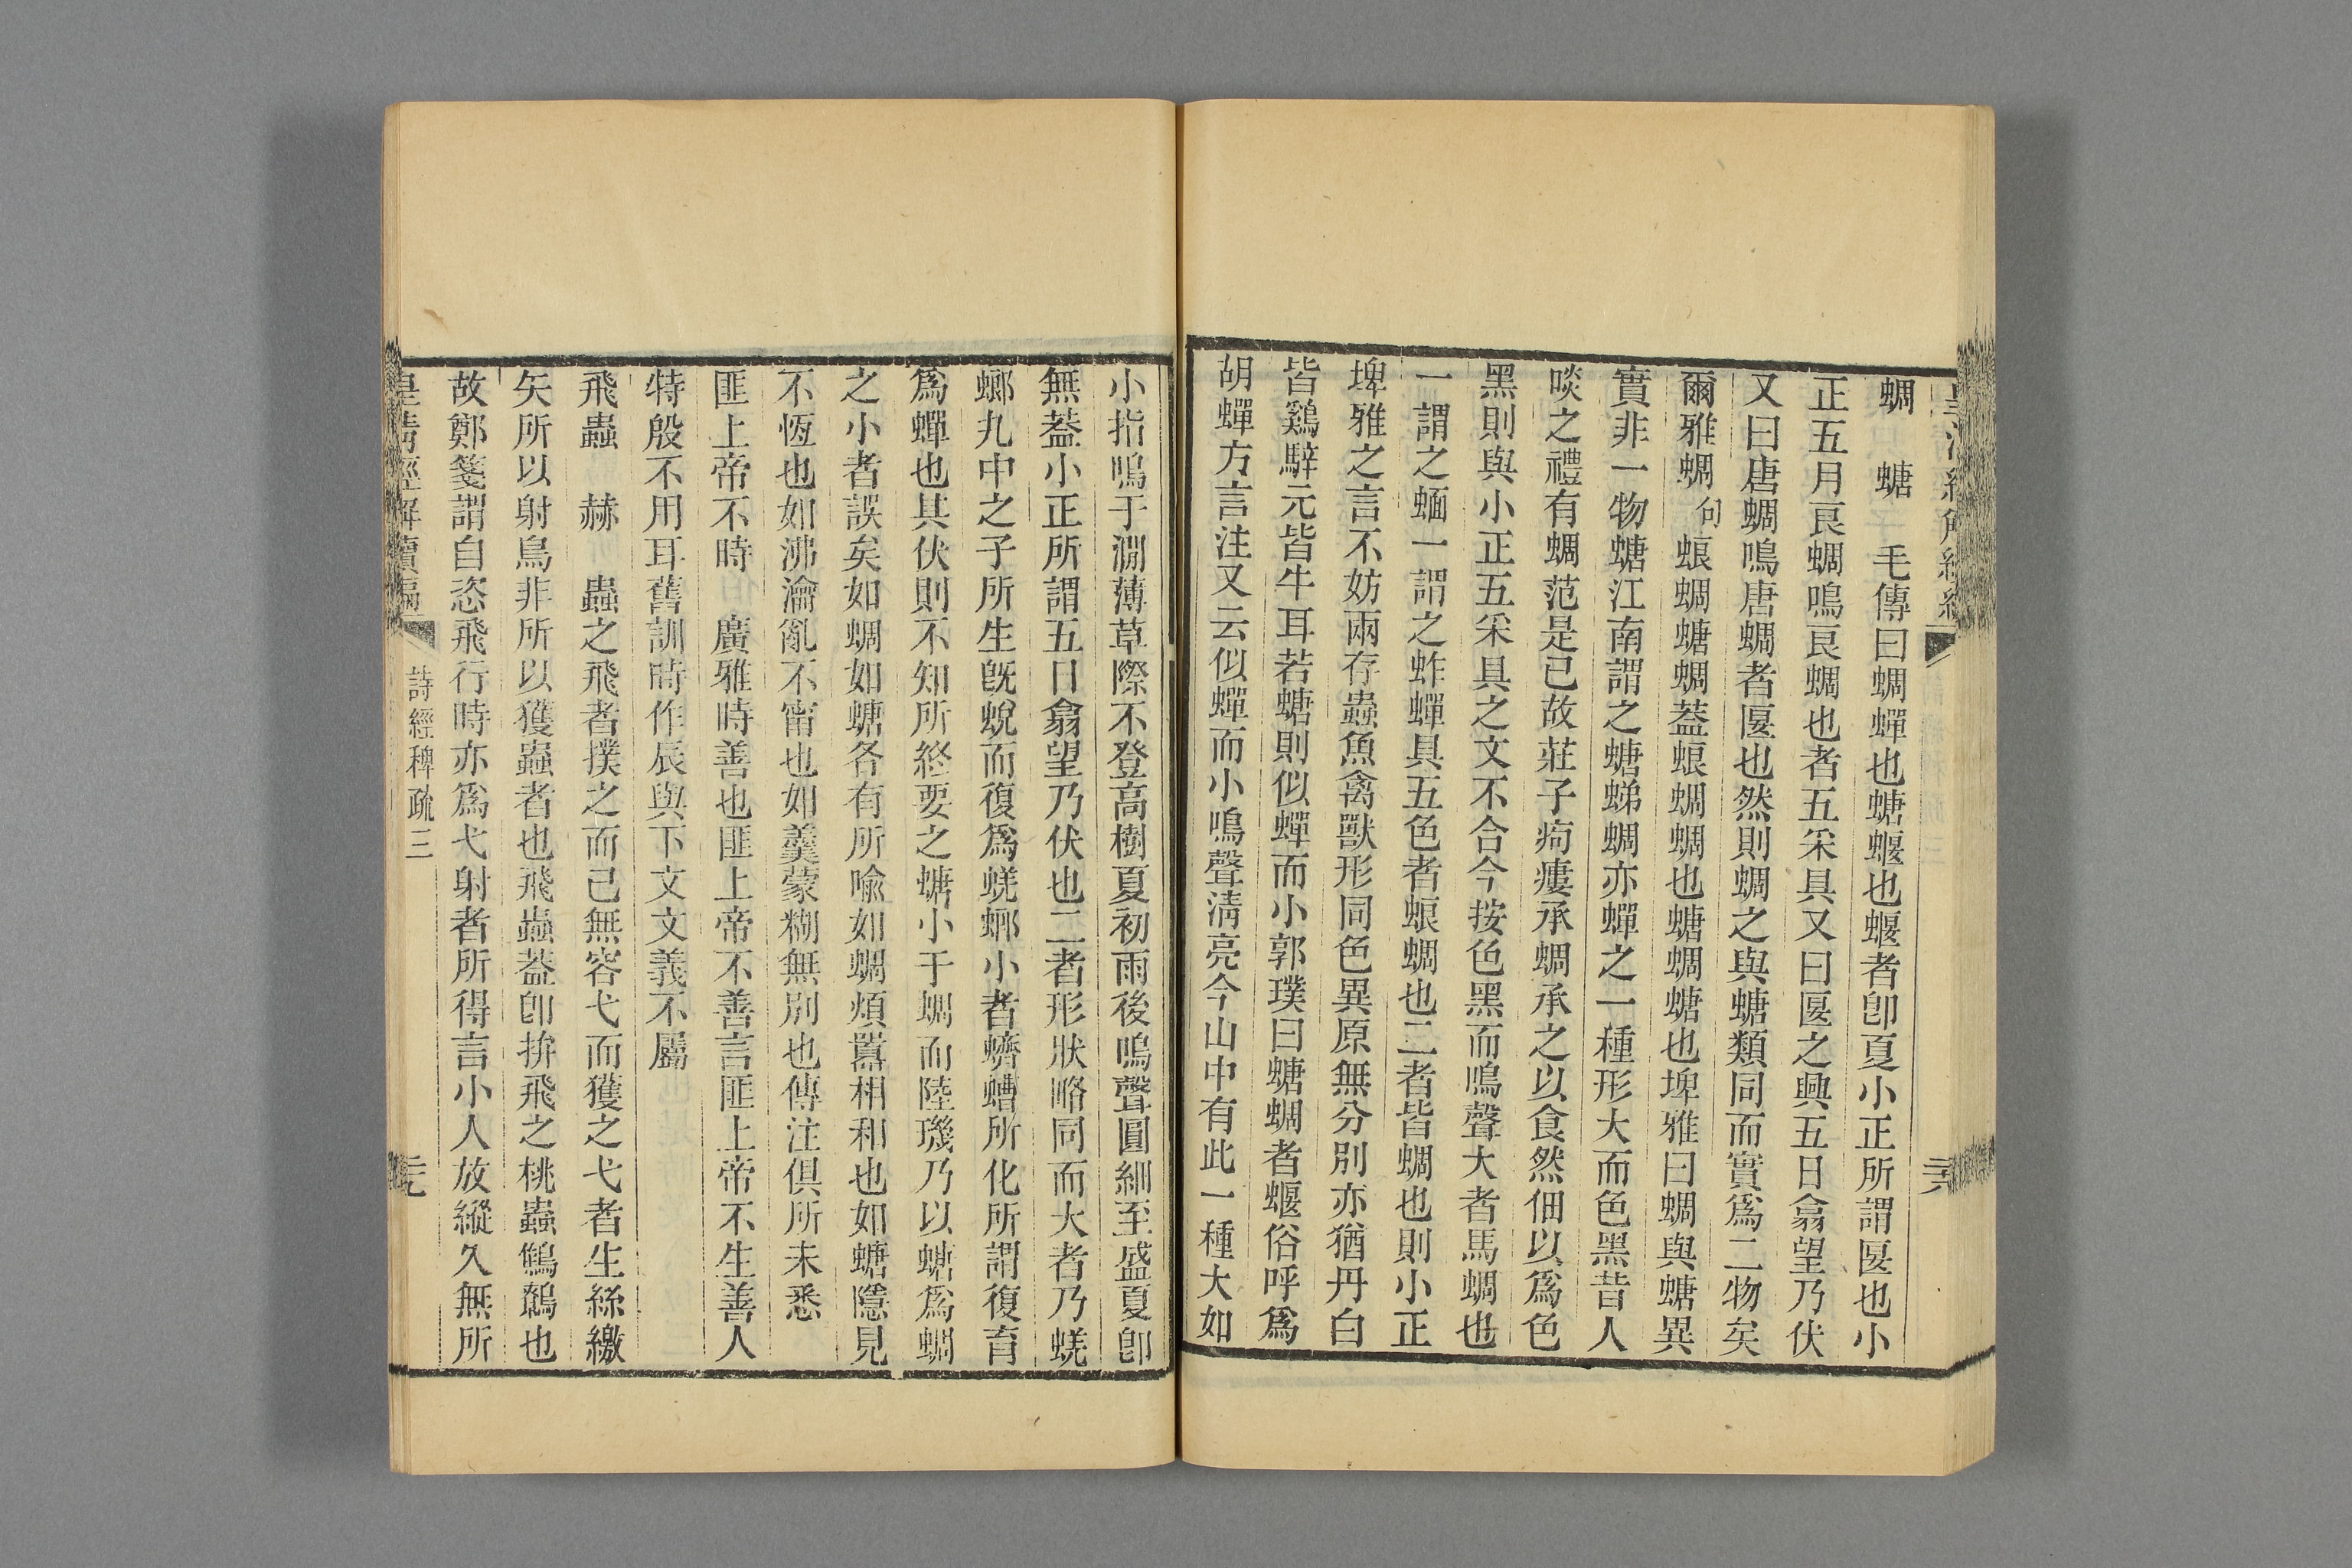 蜩　螗　毛傳曰蜩蟬也螗蝘也蝘者卽夏小正所謂匽也小
正五月良蜩鳴良蜩也者五采具又曰匽之興五日翕望乃伏
又曰唐蜩鳴唐蜩者匽也然則蜩之與螗類同而實爲二物矣
爾雅蜩句蜋蜩螗蜩蓋蜋蜩蜩也螗蜩螗也埤雅曰蜩與螗異
實非一物螗江南謂之螗蛦蜩亦蟬之一種形大而色黑昔人
啖之禮有蜩范是已故莊子痀瘻承蜩承之以食然佃以爲色
黑則與小正五采具之文不合今按色黑而鳴聲大者馬蜩也
一謂之蝒一謂之蚱蟬具五色者蜋蜩也二者皆蜩也則小正
埤雅之言不妨兩存蟲魚禽獸形同色異原無分別亦猶丹白
皆鷄騂元皆牛耳若螗則似蟬而小郭璞曰螗蜩者蝘俗呼爲
胡蟬方言注又云似蟬而小鳴聲淸亮今山中有此一種大如
小指鳴于澗薄草際不登高樹夏初雨後鳴聲圓細至盛夏卽
無蓋小正所謂五日翕望乃伏也二者形狀略同而大者乃蜣
螂丸中之子所生旣蛻而復爲蜣螂小者蠐螬所化所謂復育
爲蟬也其伏則不知所終要之螗小于蜩而陸璣乃以螗爲蜩
之小者誤矣如蜩如螗各有所喩如蜩煩囂相和也如螗隱見
不恆也如沸瀹亂不甯也如羹蒙糊無別也傳注俱所未悉
匪上帝不時　廣雅時善也匪上帝不善言匪上帝不生善人
特殷不用耳舊訓時作辰與下文文義不屬
飛蟲　赫　蟲之飛者撲之而已無容弋而獲之弋者生絲繳
矢所以射鳥非所以獲蟲者也飛蟲蓋卽拚飛之桃蟲鷦鷯也
故鄭箋謂自恣飛行時亦爲弋射者所得言小人放縱久無所
皇清經解續編　詩經稗疏三　三九